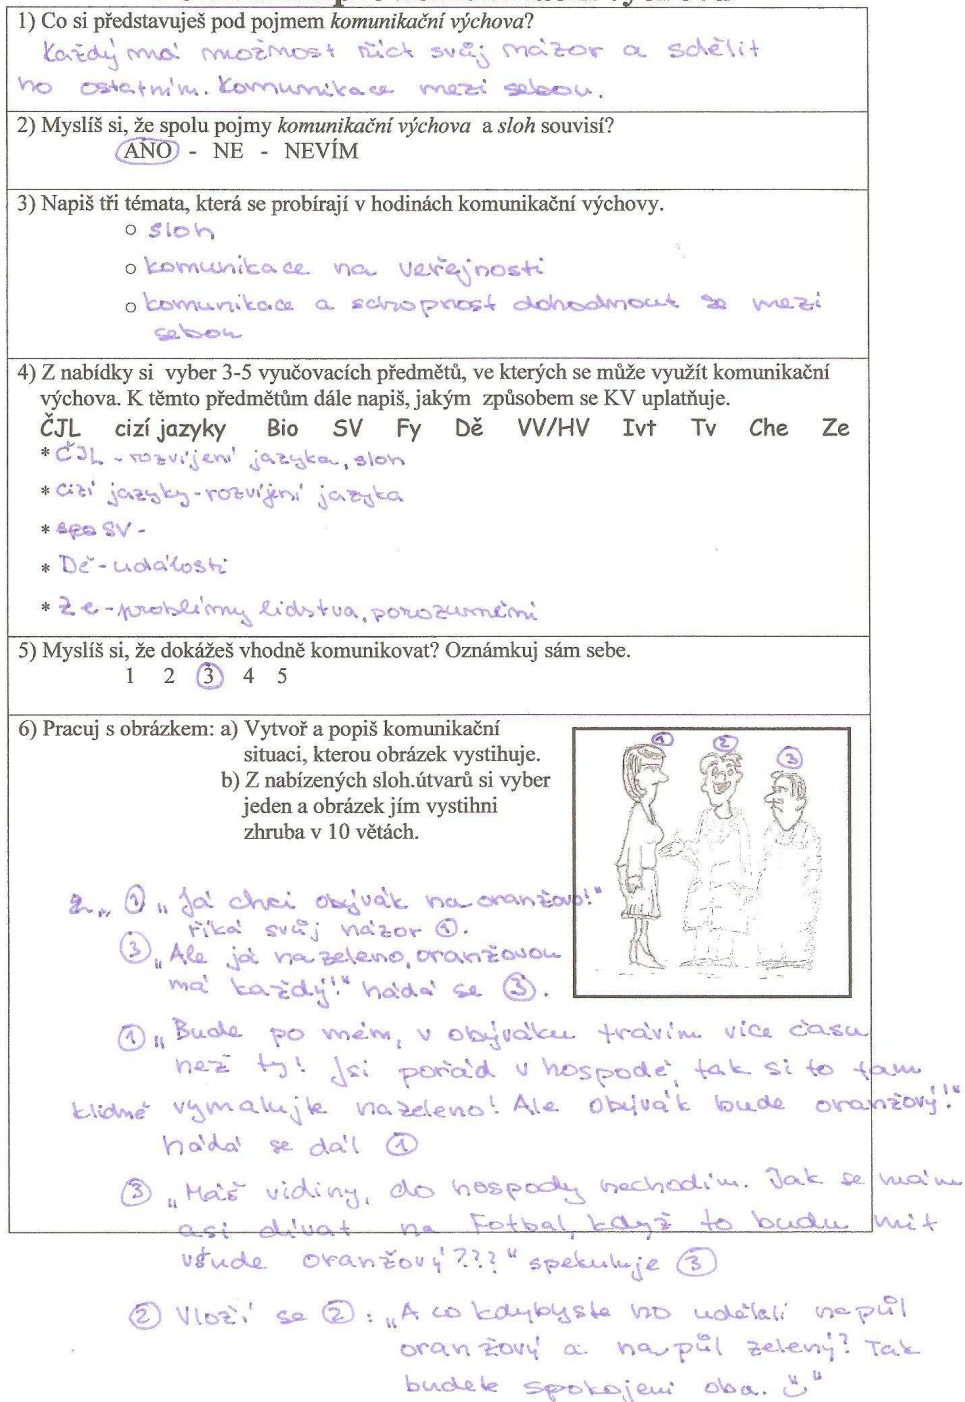 1) Co si představuješ pod pojmem komunikační výchova?
Každý má možnost říct svůj názor a sdělit
ho ostatním. Komunikace mezi sebou.
2) Myslíš si, že spolu pojmy komunikační výchova a sloh souvisí?
ANO - NE - NEVÍM
3) Napiš tři témata, která se probírají v hodinách komunikační výchovy.
o sloh
o komunikace na veřejnosti
o komunikace a schopnost dohodnout se mezi
sebou
4) Z nabídky si vyber 3-5 vyučovacích předmětů, ve kterých se může využít komunikační
výchova. K těmto předmětům dále napiš, jakým způsobem se KV uplatňuje.
ČJL cizí jazyky Bio SV Fy Dě VV/HV Ivt Tv Che Ze
* ČJL - rozvíjení jazyka, sloh
* cizí jazyky - rozvíjení jazyka
* SV -
* Dě - události
* Ze - problémy lidstva, porozumění
5) Myslíš si, že dokážeš vhodně komunikovat? Oznámkuj sám sebe.
1 2 3 4 5
6) Pracuj s obrázkem: a) Vytvoř a popiš komunikační
situaci, kterou obrázek vystihuje.
b) Z nabízených sloh.útvarů si vyber
jeden a obrázek jím vystihni
zhruba v 10 větách.
1 2 3
① „Já chci obývák na oranžovo!“
říká svůj názor ①.
③ „Ale já na zeleno, oranžovou
má každý!“ hádá se ③.
① „Bude po mém, v obýváku trávím více času
než ty! Jsi pořád v hospodě, tak si to tam
klidně vymalujte nazeleno! Ale obývák bude oranžový!“
hádá se dál ①
③ „Máš vidiny, do hospody nechodím. Jak se mám
asi dívat na Fotbal, když to budu mít
všude oranžový???“ spekuluje ③
② Vloží se ②: „A co kdybyste ho udělali napůl
oranžový a napůl zelený? Tak
budete spokojeni oba. ☺“